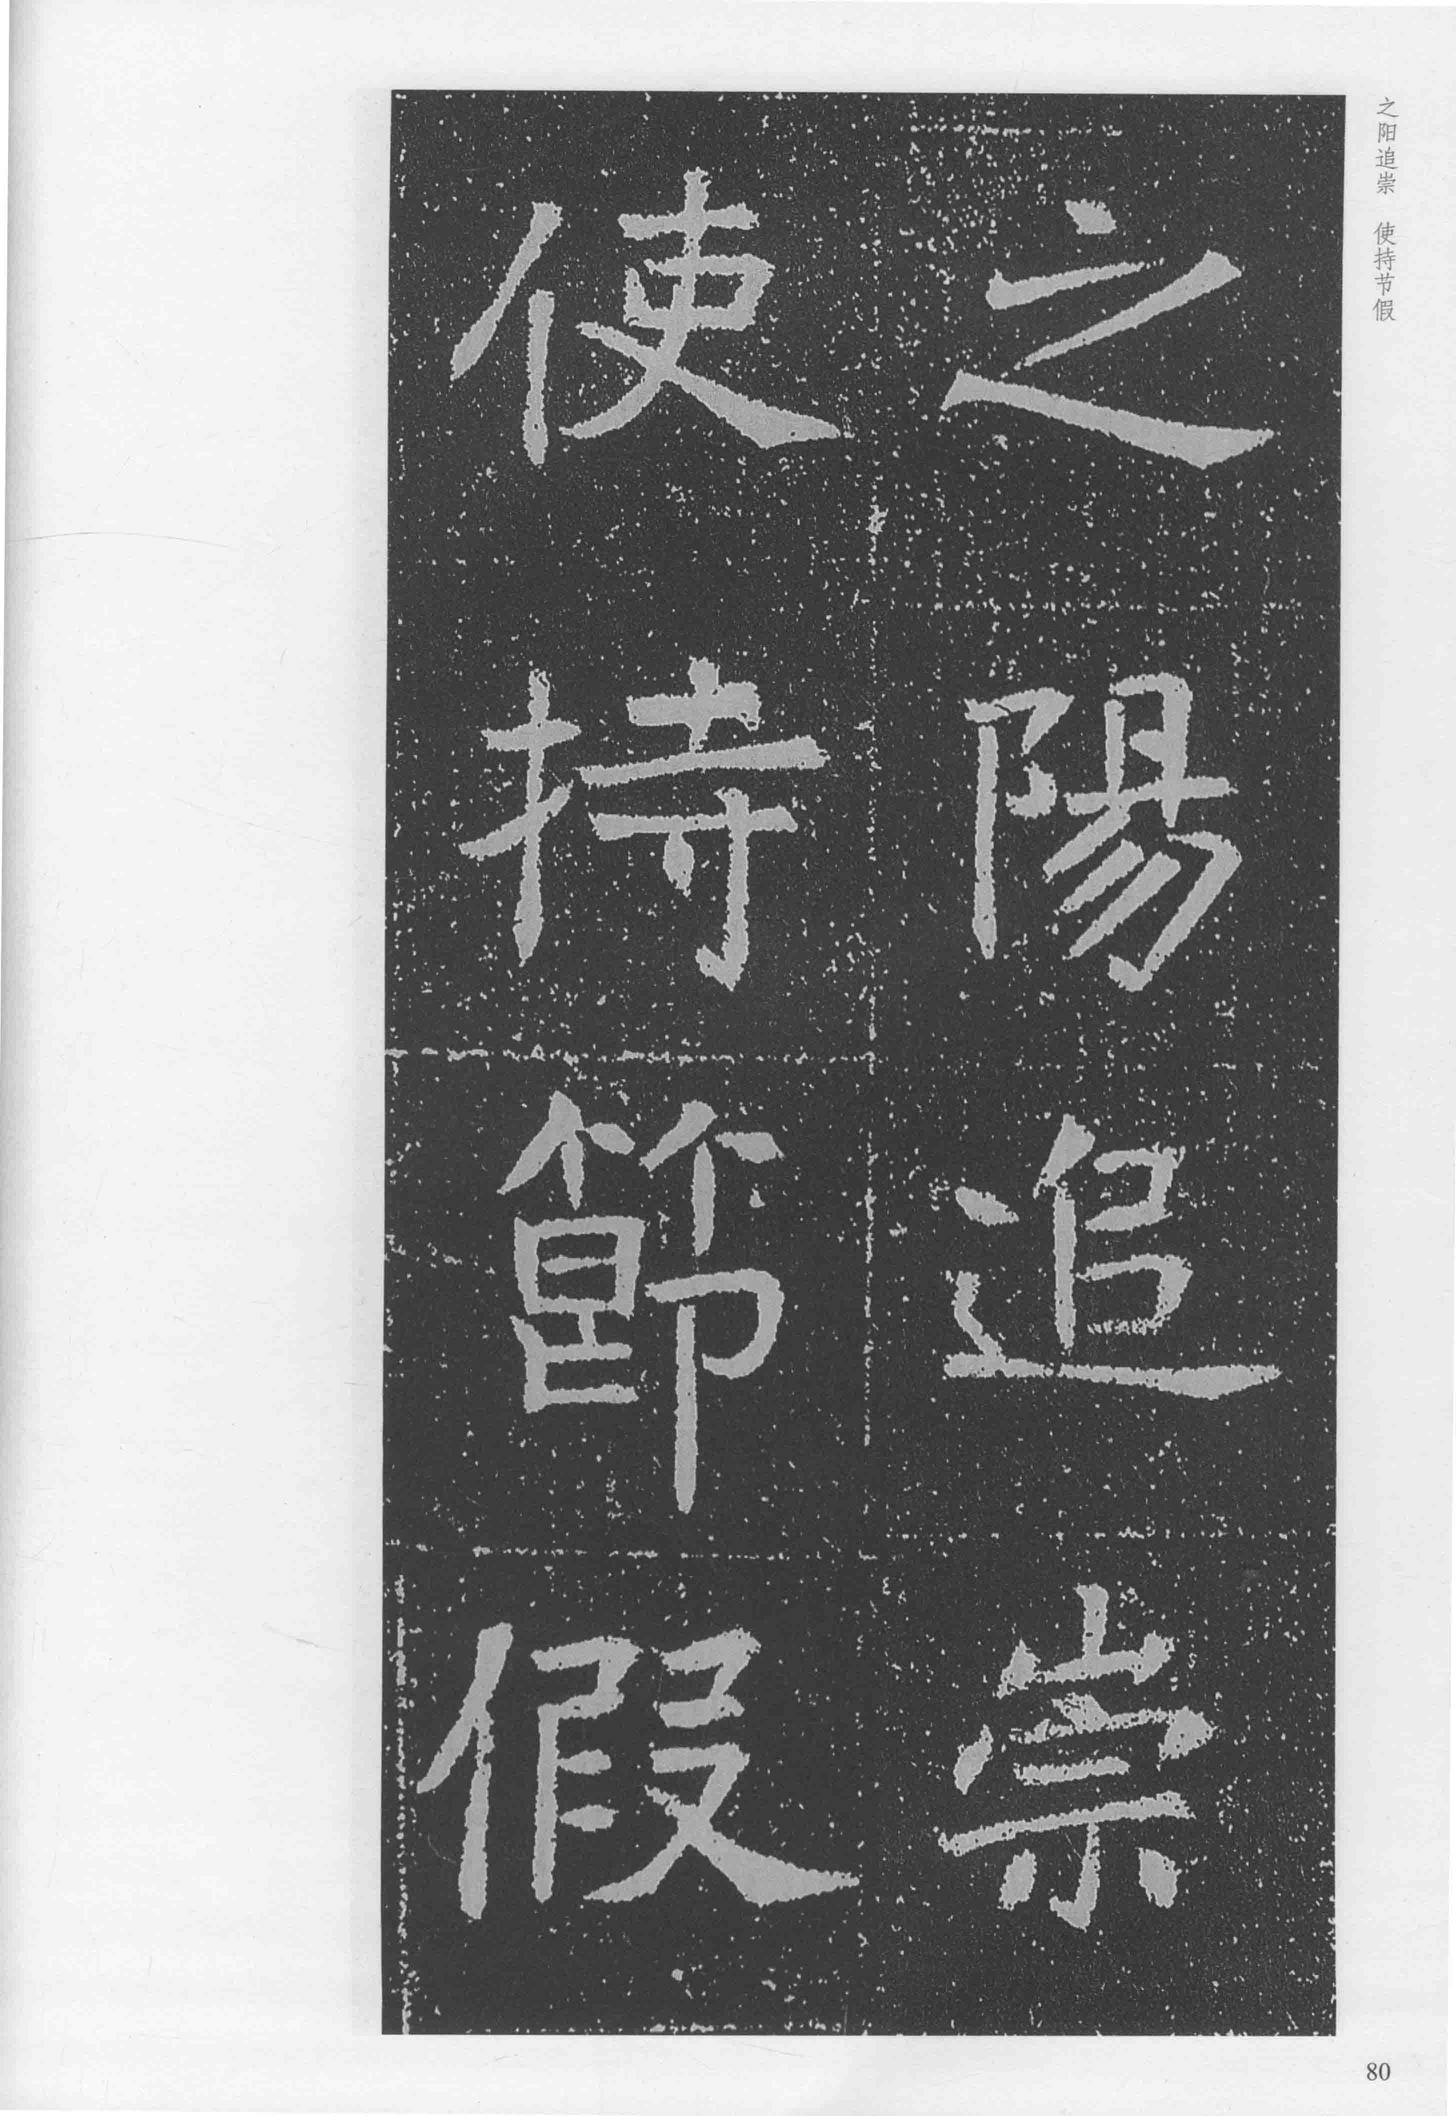 之阳追崇　使持节假
之陽追崇
使持節假
80